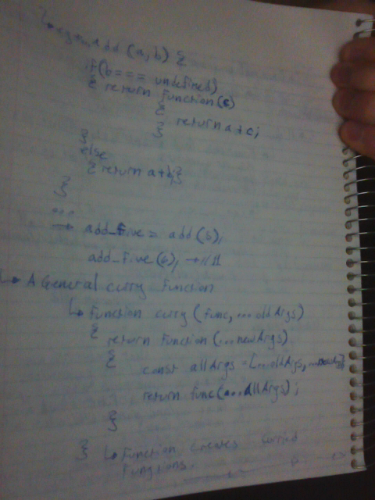 ↳ e.g. add (a, b) {
if (b === undefined)
{ return function (c)
{
return a + c;
}
}
else
{ return a+b; }
}
...
→ add_five = add (5);
add_five (6); → 11
↳ A General curry function
↳ function curry (func, ...oldArgs)
{
return function (...newArgs)
{
const allArgs = [...oldArgs,
return func (...allArgs);
}
} ↳ Function creates curried
functions.